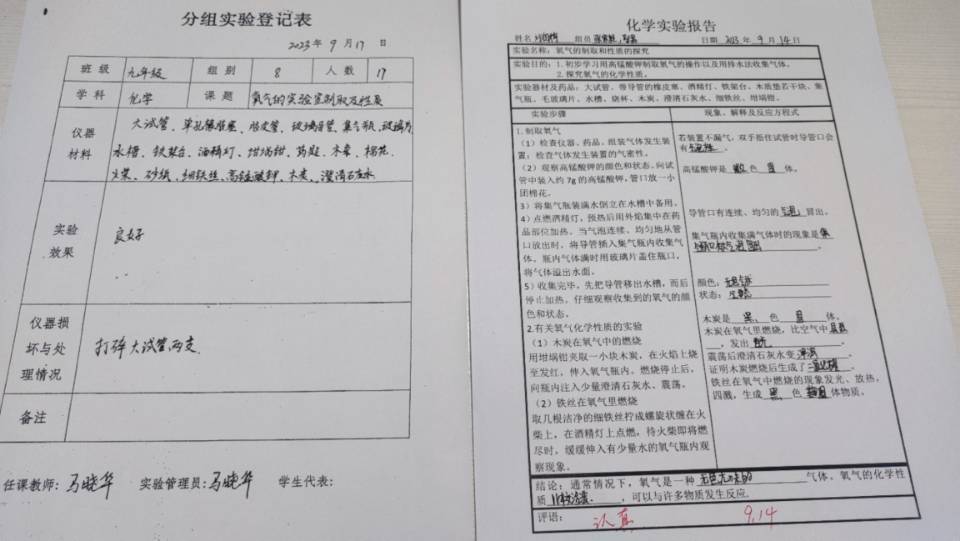 分组实验登记表
2023年9月17日
班级 九年级 组别 8 人数 17
学科 化学 课题 氧气的实验室制取及性质
仪器材料
大试管、单孔橡胶塞、胶皮管、玻璃导管、集气瓶、玻璃片
水槽、铁架台、酒精灯、坩埚钳、药匙、木条、棉花
火柴、砂纸、细铁丝、高锰酸钾、木炭、澄清石灰水
实验效果
良好
仪器损坏与处理情况
打碎大试管两支
备注
任课教师：马晓华 实验管理员：马晓华 学生代表：
化学实验报告
姓名 组员 日期 2023年9月14日
实验名称：氧气的制取和性质的探究
实验目的：1.初步学习用高锰酸钾制取氧气的操作以及用排水法收集气体。
2.探究氧气的化学性质。
实验器材及药品：大试管、带导管的橡皮塞、酒精灯、铁架台、木质垫若干块、集
气瓶、毛玻璃片、水槽、烧杯、木炭、澄清石灰水、细铁丝、坩埚钳。
实验步骤 现象、解释及反应方程式
1.制取氧气
（1）检查仪器、药品。组装气体发生装
置；检查气体发生装置的气密性。
（2）观察高锰酸钾的颜色和状态。向试
管中装入约7g的高锰酸钾，管口放一小
团棉花。
3）将集气瓶装满水倒立在水槽中备用。
4）点燃酒精灯，预热后用外焰集中在药
品部位加热。当气泡连续、均匀地从管
口放出时，将导管插入集气瓶内收集气
体。瓶内气体满时用玻璃片盖住瓶口，
将气体溢出水面。
5）收集完毕，先把导管移出水槽，而后
停止加热。仔细观察收集到的氧气的颜
色和状态。
2.有关氧气化学性质的实验
（1）木炭在氧气中的燃烧
用坩埚钳夹取一小块木炭，在火焰上烧
至发红，伸入氧气瓶内。燃烧停止后，
向瓶内注入少量澄清石灰水、震荡。
（2）铁丝在氧气里燃烧
取几根洁净的细铁丝拧成螺旋状缠在火
柴上，在酒精灯上点燃，待火柴即将燃
尽时，缓缓伸入有少量水的氧气瓶内观
察现象。
若装置不漏气，双手捂住试管时导管口会
有气泡。
高锰酸钾是 色 固 体。
导管口有连续、均匀的气泡冒出。
集气瓶内收集满气体时的现象是集
颜色：
状态：气态
木炭是 黑 色 固 体。
木炭在氧气里燃烧，比空气中
，发出
震荡后澄清石灰水变浑浊。
证明木炭燃烧后生成了二氧化碳。
铁丝在氧气中燃烧的现象发光、放热，
四溅，生成 黑 色 固 体物质。
结论：通常情况下，氧气是一种 无色无味的 气体。氧气的化学性
质 比较活泼 ，可以与许多物质发生反应.
评语： 认真 9.14